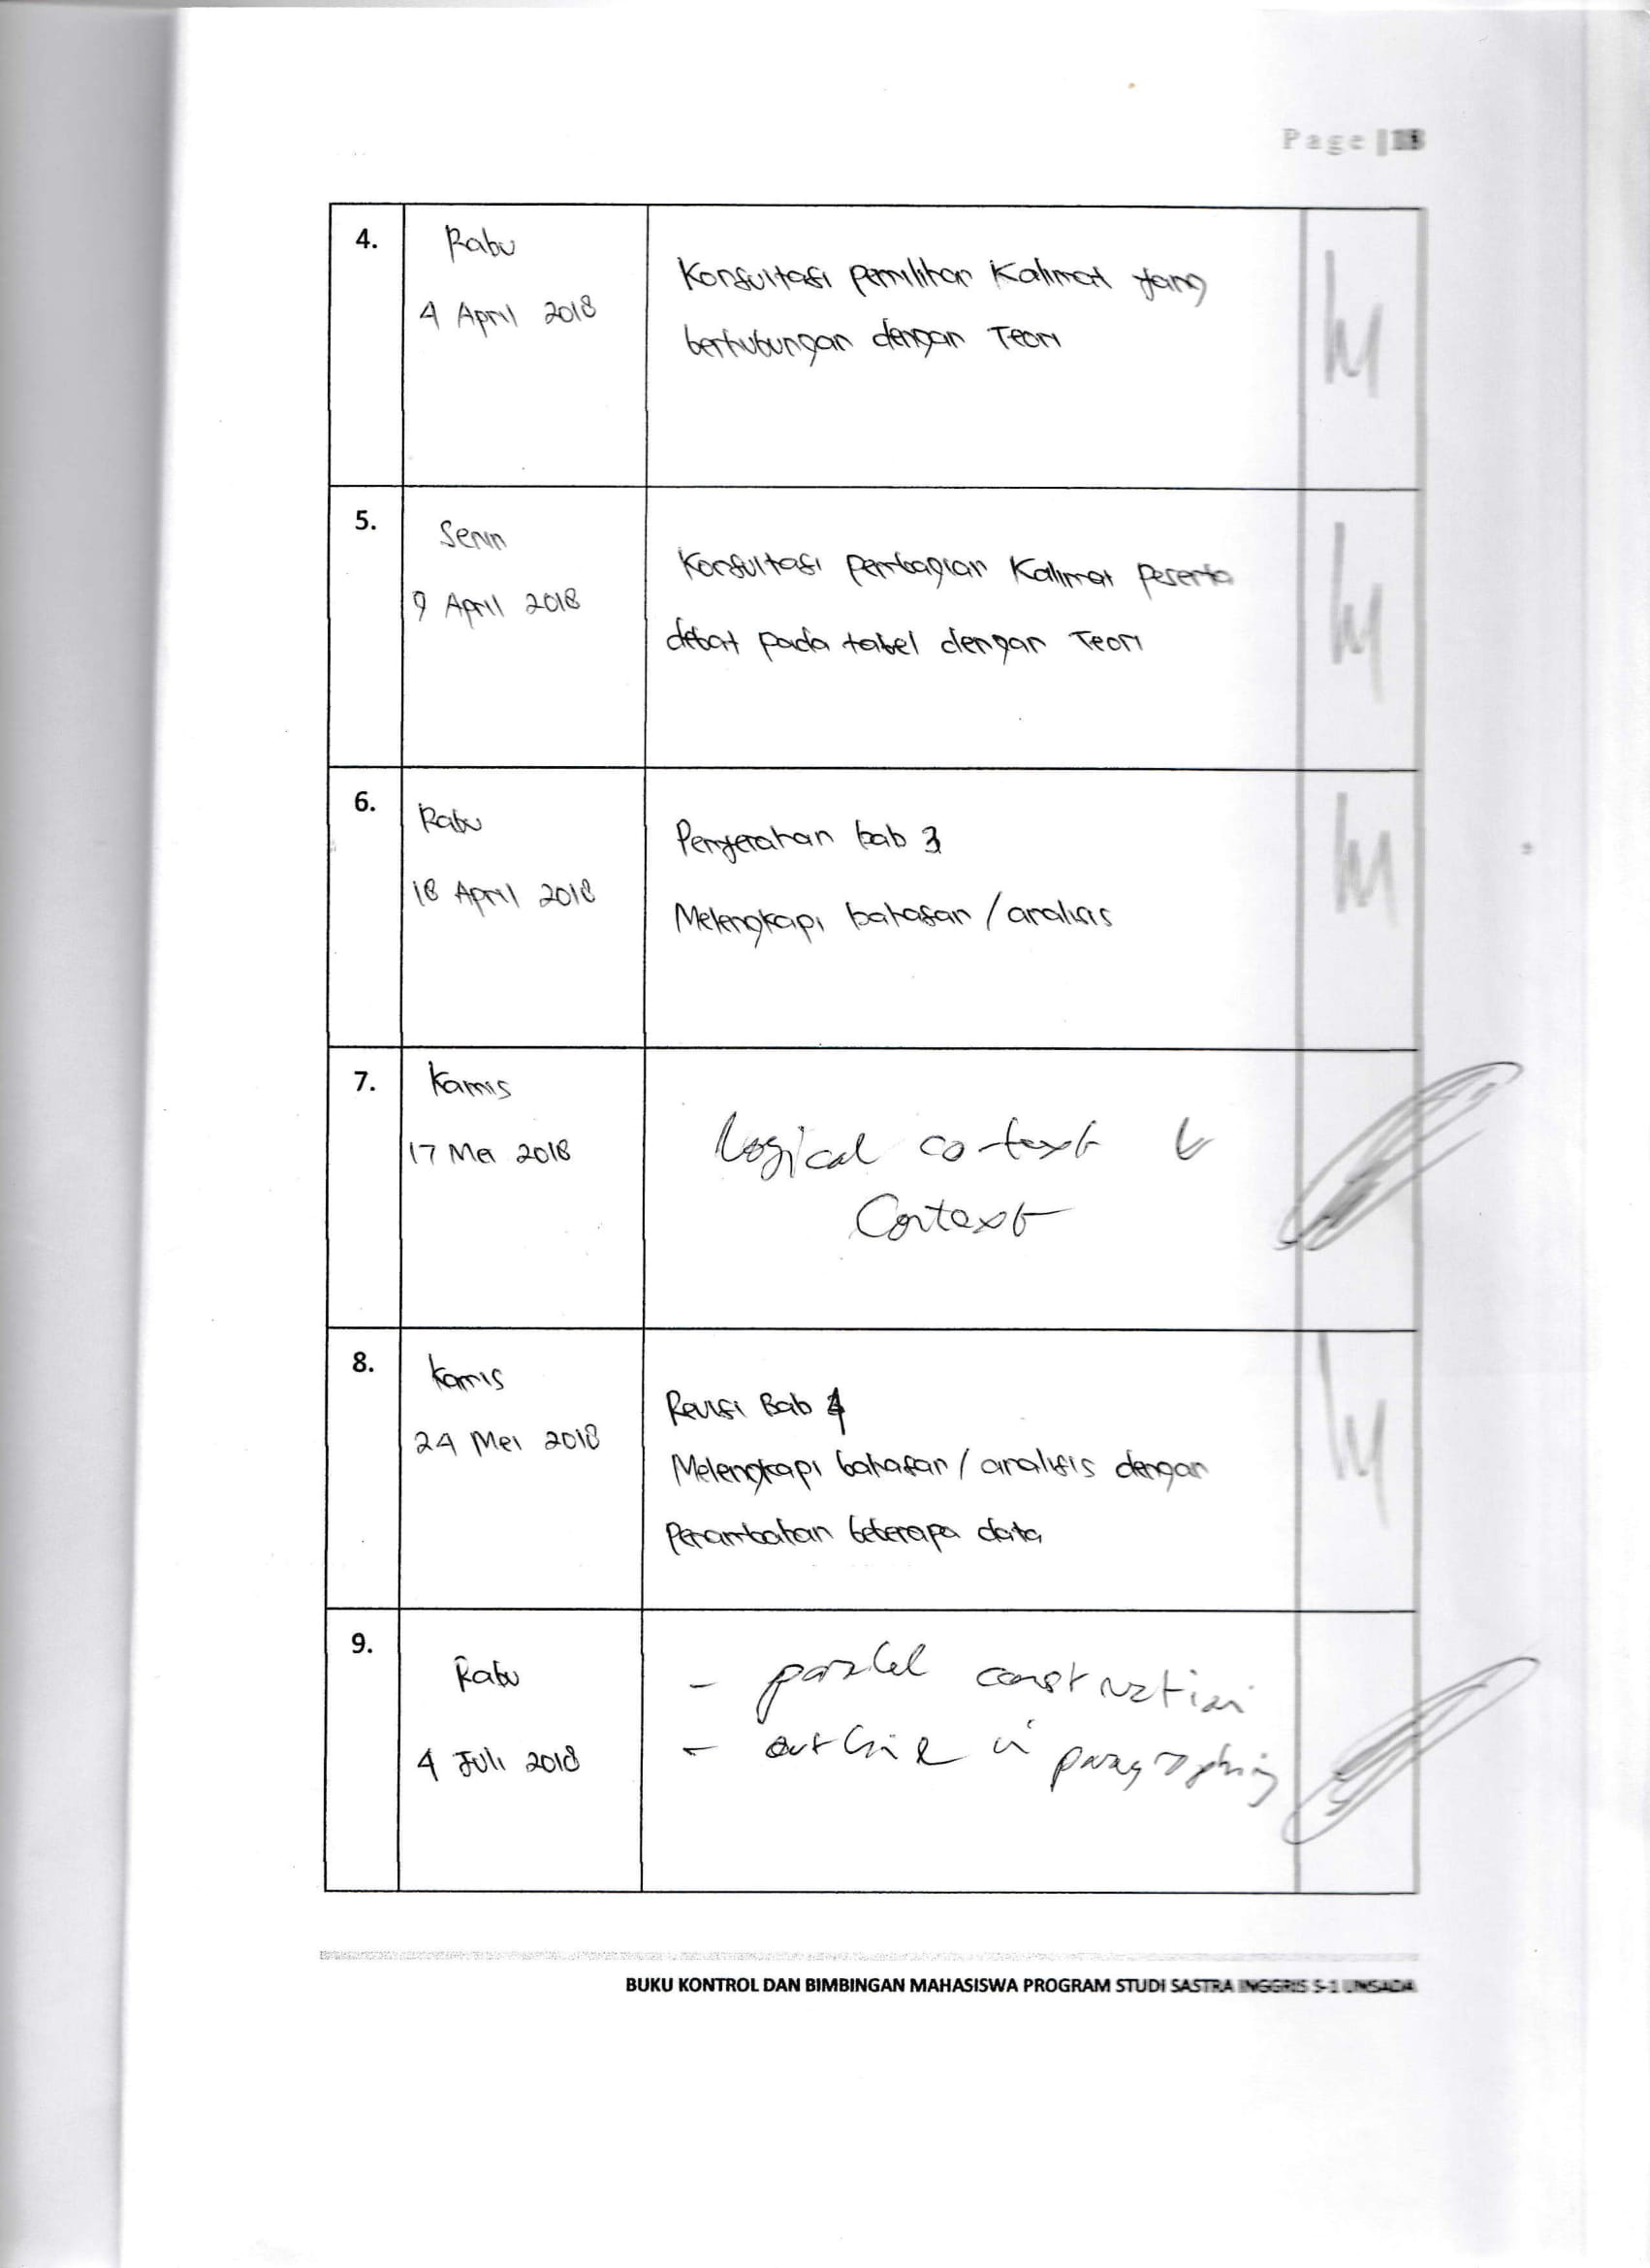 Page |
4.
Rabu
4 April 2018
Konsultasi pemilihan Kalimat yang
berhubungan dengan Teori
5.
Senin
9 April 2018
Konsultasi pembagian Kalimat peserta
debat pada tabel dengan Teori
6.
Rabu
18 April 2018
Penyerahan bab 3
Melengkapi bahasan / analisis
7.
Kamis
17 Mei 2018
Logical co-text
Context
8.
Kamis
24 Mei 2018
Revisi Bab 4
Melengkapi bahasan / analisis dengan
Penambahan beberapa data
9.
Rabu
4 Juli 2018
- paralel construction
- outline in paragraphing
BUKU KONTROL DAN BIMBINGAN MAHASISWA PROGRAM STUDI SASTRA INGGRIS S-1 UNSADA